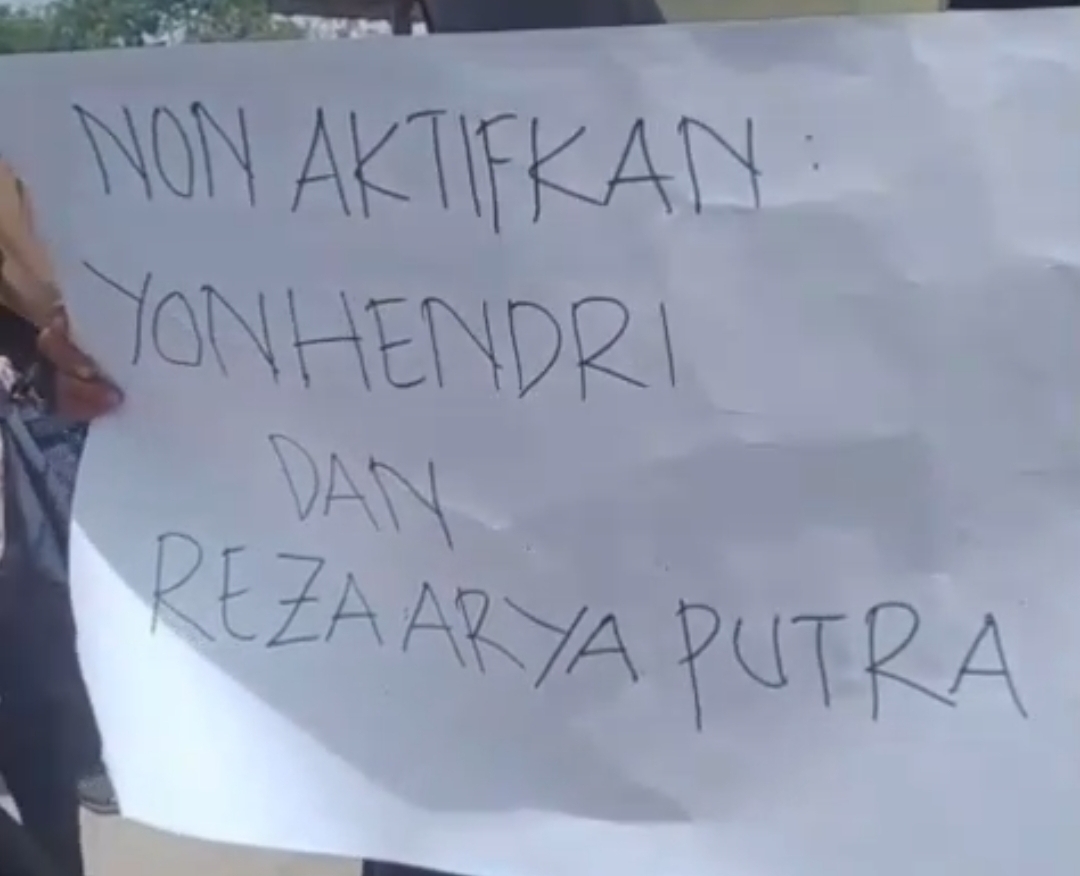 NON AKTIFKAN :
YONHENDRI
DAN
REZA ARYA PUTRA